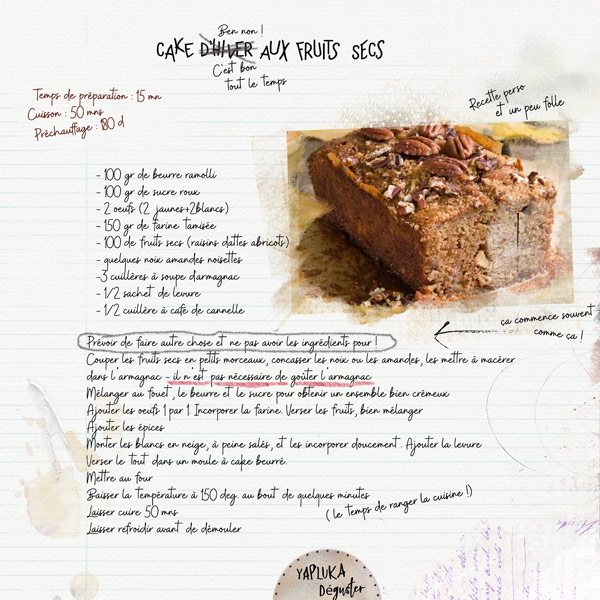 Ben non !
CAKE D'HIVER AUX FRUITS SECS
C'est bon
tout le temps
Temps de préparation : 15 mn
Cuisson : 50 mns
Préchauffage : 180 d
Recette perso
et un peu folle
- 100 gr de beurre ramolli
- 100 gr de sucre roux
- 2 oeufs (2 jaunes+2blancs)
- 150 gr de farine tamisée
- 100 de fruits secs (raisins dattes abricots)
- quelques noix amandes noisettes
-3 cuillères à soupe d'armagnac
- 1/2 sachet de levure
- 1/2 cuillère à café de cannelle
ça commence souvent
comme ça !
Prévoir de faire autre chose et ne pas avoir les ingrédients pour !
Couper les fruits secs en petits morceaux, concasser les noix ou les amandes, les mettre à macérer
dans l'armagnac - il n'est pas nécessaire de goûter l'armagnac
Mélanger au fouet, le beurre et le sucre pour obtenir un ensemble bien crémeux
Ajouter les oeufs 1 par 1. Incorporer la farine. Verser les fruits, bien mélanger
Ajouter les épices
Monter les blancs en neige, à peine salés, et les incorporer doucement. Ajouter la levure
Verser le tout dans un moule à cake beurré.
Mettre au four
Baisser la température à 150 deg. au bout de quelques minutes
Laisser cuire 50 mns
( le temps de ranger la cuisine !)
Laisser refroidir avant de démouler
YAPLUKA
Déguster